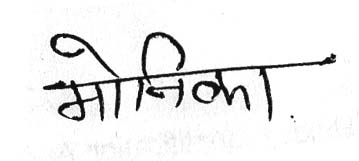 मोनिका